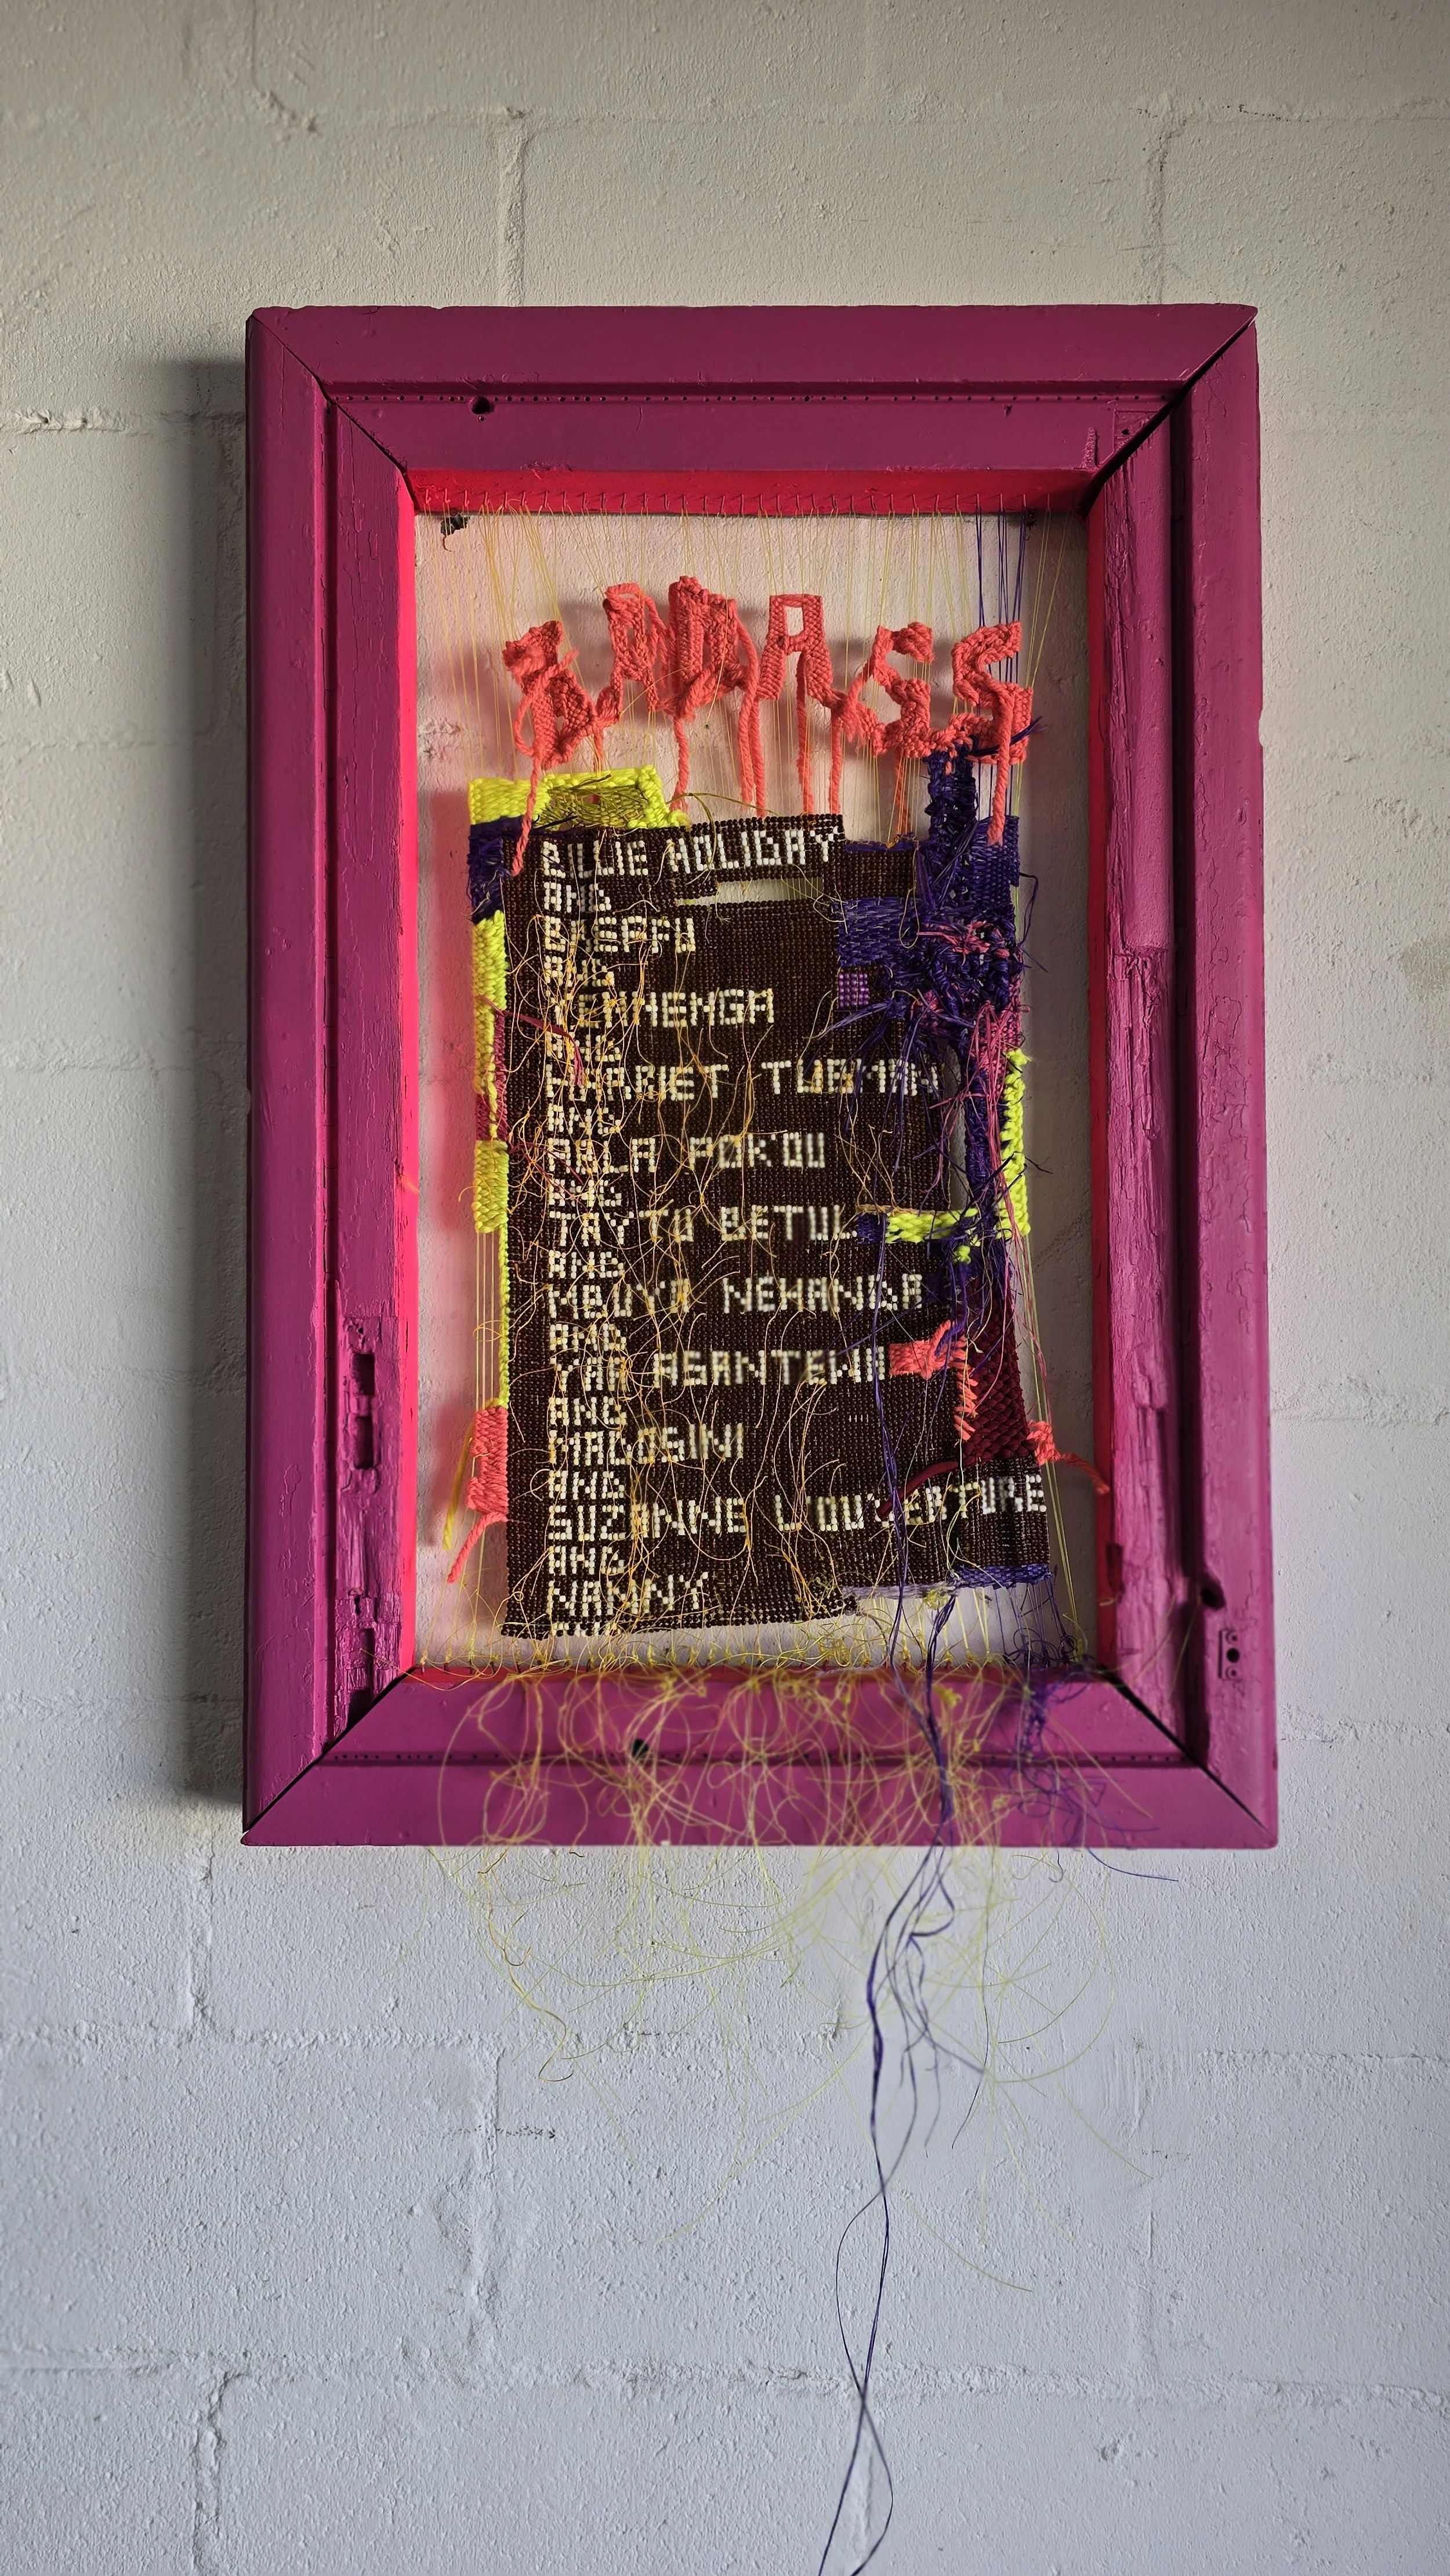 BADASS
BILLIE HOLIDAY
AND
AND
YENNENGA
AND
HARRIET TUBMAN
AND
ABLA POK'OU
AND
TAY TU BETUL
AND
MBUYA NEHANDA
AND
YAA ASANTEWA
AND
AND
SUZANNE LOUVERTURE
AND
NANNY